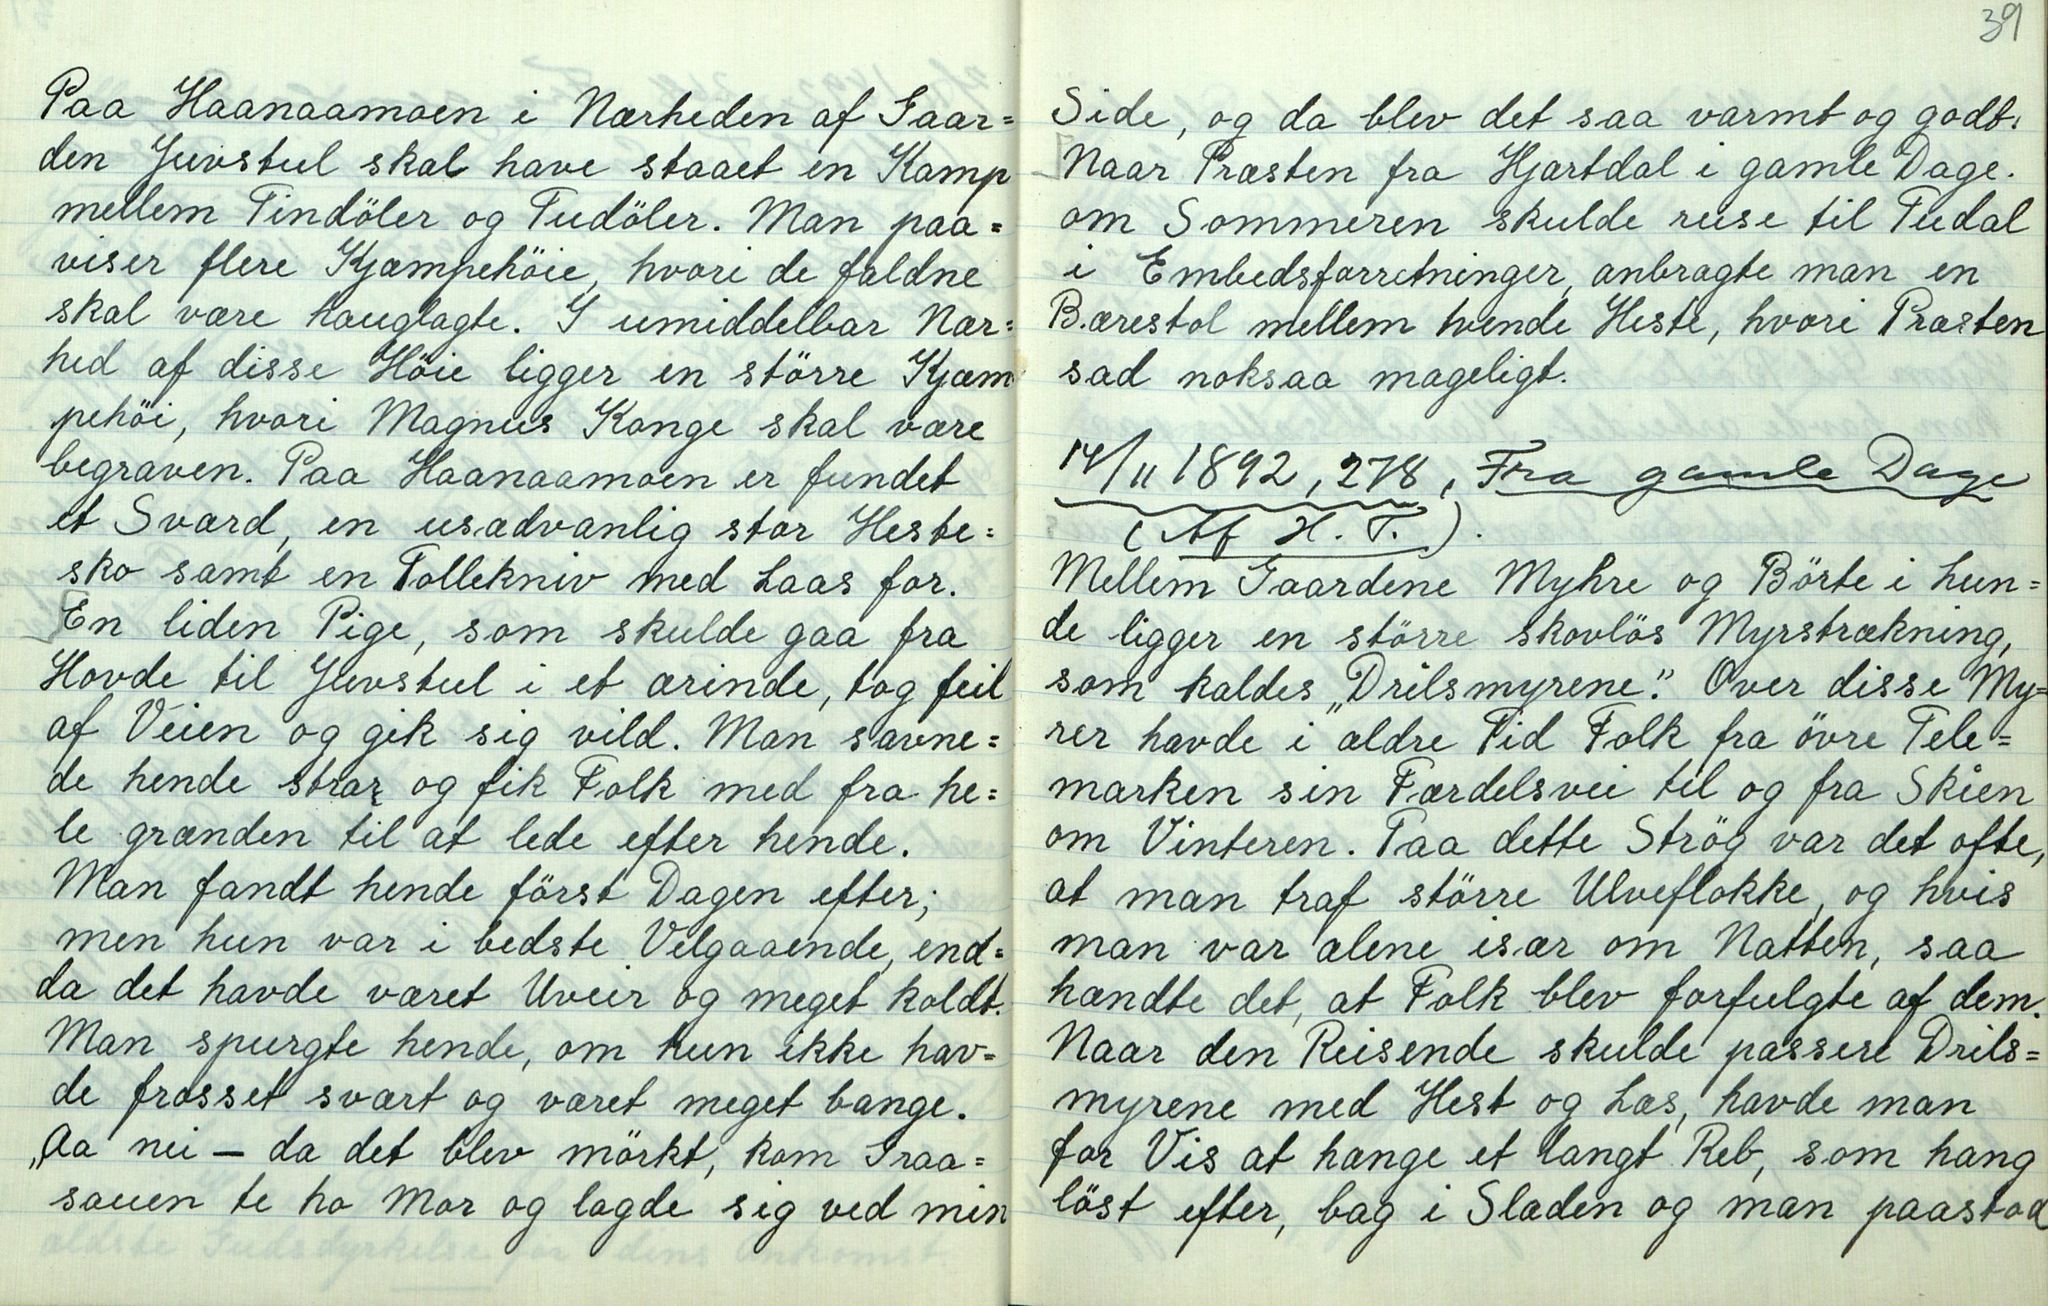 Paa Haanaamoen i Nærheden af Gaar=
den Juvstul skal have staaet en Kamp
mellem Tindöler og Tudöler. Man paa=
viser flere Kjæmpehöie, hvori de faldne
skal være hauglagte. I umiddelbar Nær=
hed af disse Höie ligger en större Kjæm
pehöi, hvori Magnus Konge skal være
begraven. Paa Haanaamoen er fundet
et Sværd, en usædvanlig stor Heste=
sko samt en Tollekniv med Laas for.
En liden Pige, som skulde gaa fra
Hovde til Juvstul i et ærinde, tog feil
af Veien og gik sig vild. Man savne=
de hende strax og fik Folk med fra he=
le grænden til at lede efter hende.
Man fandt hende först Dagen efter;
men hun var i bedste Velgaaende, end=
da det havde været Uveir og meget koldt.
Man spurgte hende, om hun ikke hav=
de frosset svært og været meget bange.
„Aa nei – da det blev mörkt, kom Graa=
sauen te ho Mor og lagde sig ved min
39
Side, og da blev det saa varmt og godt.
Naar Præsten fra Hjartdal i gamle Dage.
om Sommeren skulde reise til Tudal
i Embedsforretninger, anbragte man en
Bærestol mellem tvende Heste, hvori Præsten
sad noksaa mageligt.
14/11 1892, 278, Fra gamle Dage
(Af H. T.).
Mellem Gaardene Myhre og Börte i Lun=
de ligger en större skovlös Myrstrækning,
som kaldes „Drilsmyrene". Over disse My=
rer havde i ældre Tid Folk fra övre Tele=
marken sin Færdelsvei til og fra Skien
om Vinteren. Paa dette Strög var det ofte,
at man traf större Ulveflokke, og hvis
man var alene især om Natten, saa
hændte det, at Folk blev forfulgte af dem.
Naar den Reisende skulde passere Drils=
myrene med Hest og Læs, havde man
for Vis at hænge et langt Reb, som hang
löst efter, bag i Slæden og man paastod